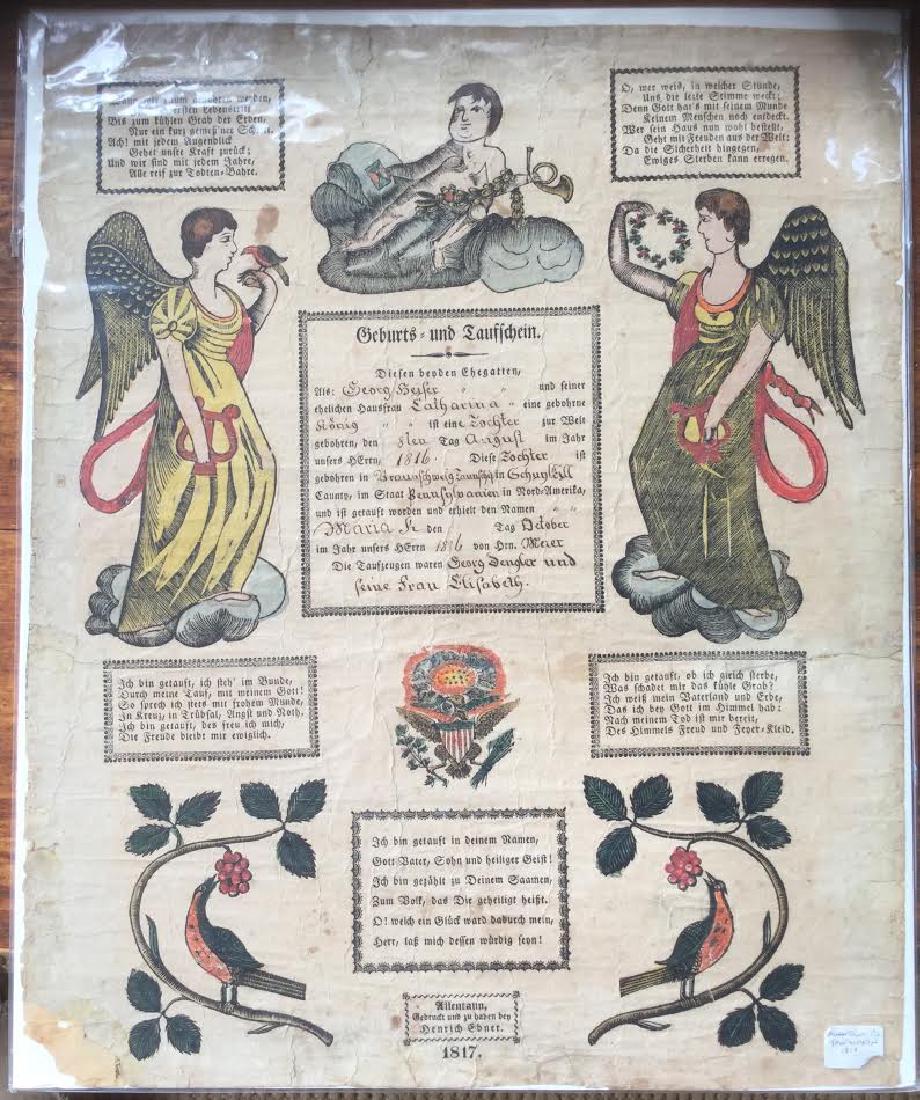 Wann wir kaum gebohren werden,
ersten Lebenstritt
Bis zum kühlen Grab der Erden,
Nur ein kurz gemeß'ner Schritt.
Ach! mit jedem Augenblick
Gehet unsre Kraft zurück;
Und wir sind mit jedem Jahre,
Alle reif zur Todten-Bahre.
O, wer weis, in welcher Stunde,
Uns die letzte Stimme weckt;
Denn Gott hat's mit seinem Munde
Keinem Menschen noch entdeckt.
Wer sein Haus nun wohl bestellt,
Geht mit Freuden aus der Welt;
Da die Sicherheit hingegen,
Ewiges Sterben kann erregen.
Geburts- und Taufschein.
Diesen beyden Ehegatten,
Als: Georg Heiser " " und seiner
ehelichen Hausfrau Catharina " eine gebohrne
König " " ist eine Tochter zur Welt
gebohren, den 8ten Tag August im Jahr
unsers HErrn, 1816. Diese Tochter ist
gebohren in Braunschweig Taunschip in Schuylkill
County, im Staat Pennsylvanien in Nord-Amerika,
und ist getauft worden und erhielt den Namen " "
Maria den Tag October
im Jahr unsers HErrn 1816 von Hrn. Meier
Die Taufzeugen waren Georg Dengler und
seine Frau Elisabeth.
Ich bin getauft, ich steh' im Bunde,
Durch meine Tauf, mit meinem Gott!
So sprech ich stets mit frohem Munde,
In Kreuz, in Trübsal, Angst und Noth,
Ich bin getauft, des freu ich mich,
Die Freude bleibt mir ewiglich.
Ich bin getauft, ob ich gleich sterbe,
Was schadet mir das kühle Grab?
Ich weiß mein Vaterland und Erbe,
Das ich bey Gott im Himmel hab:
Nach meinem Tod ist mir bereit,
Des Himmels Freud und Feyer-Kleid.
Ich bin getauft in deinem Namen,
Gott Vater, Sohn und heiliger Geist!
Ich bin gezählt zu Deinem Saamen,
Zum Volk, das Dir geheiligt heißt.
O! welch ein Glück ward dadurch mein,
Herr, laß mich dessen würdig seyn!
Allentaun,
Gedruckt und zu haben bey
Henrich Ebner.
1817.